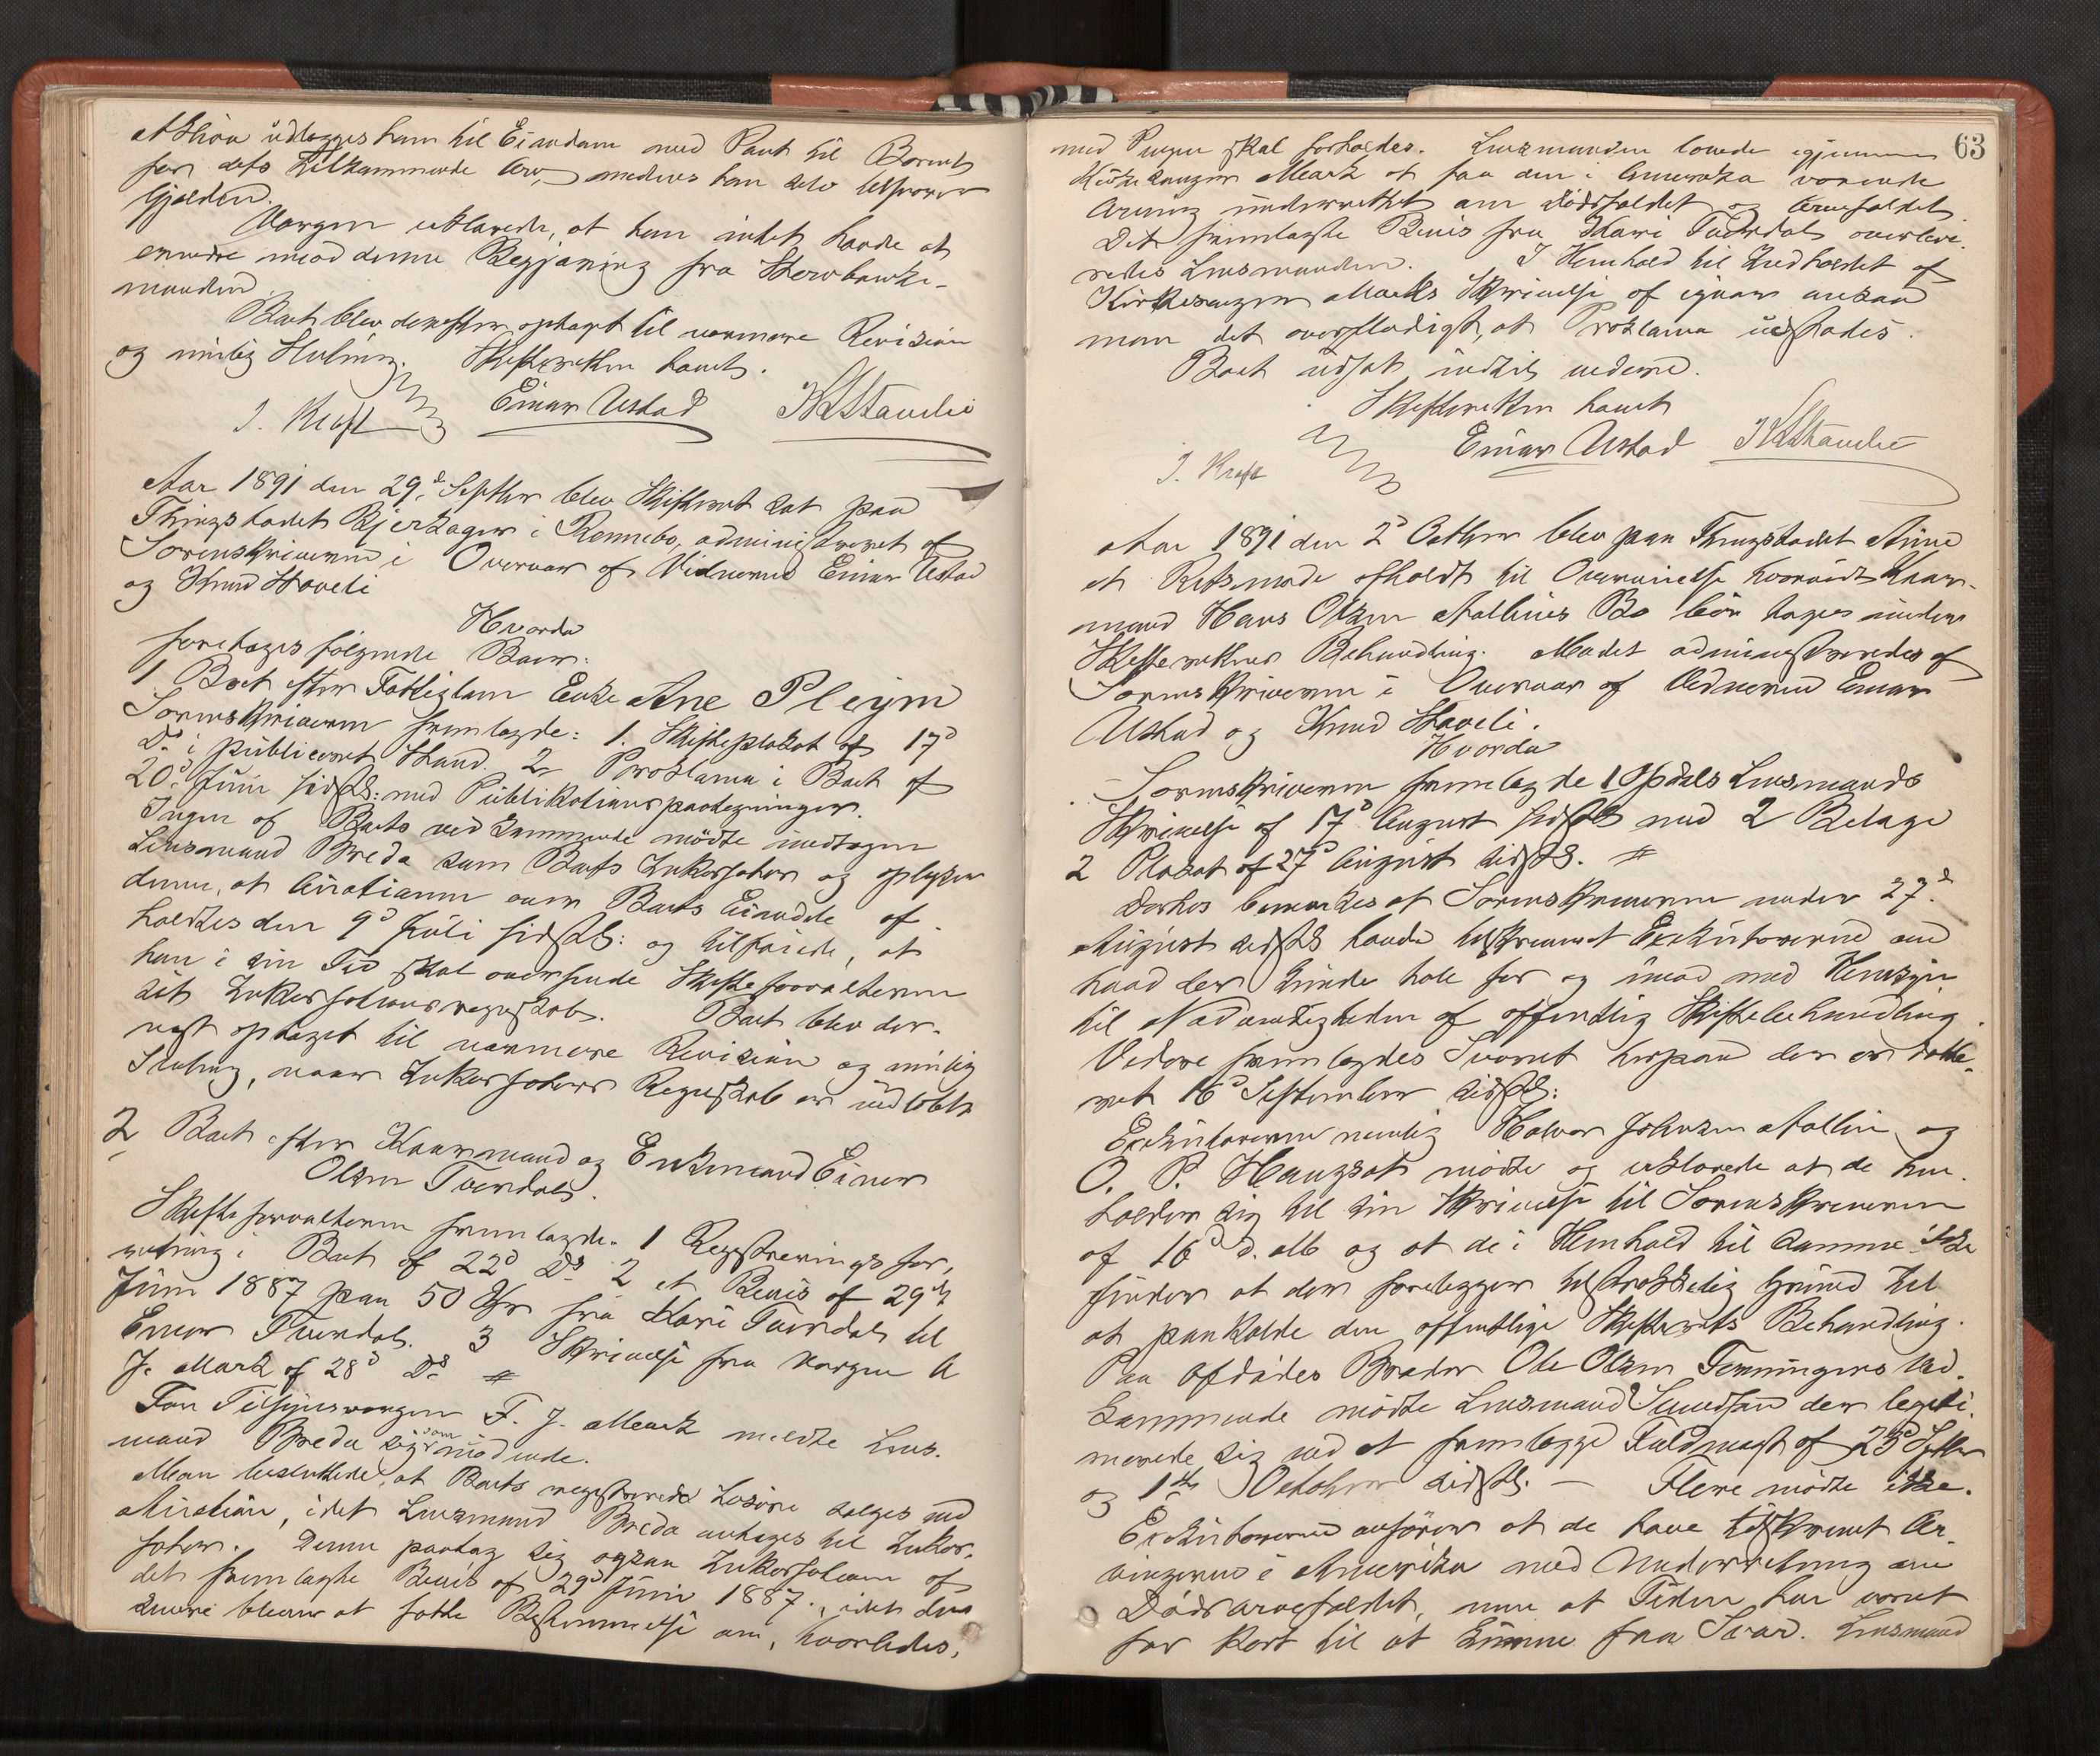 Aktion udlægges ham til Eiendom med Pant til Barnets
for dets tilkommende Arv, medens han selv tilsvarer
Gjælden.
Værgen erklærede, at han intet havde at
erindre mod denne Begjæring fra Stervboenke-
manden.
Boet blev derefter optaget til nærmere Revision
og mulig Slutning. Skifteretten hævet.
J. Kraft Einar Ustad K Staveli
Aar 1891 den 29d Septbr blev Skifteret sat paa
Thingstedet Bjerkager i Rennebo, administreret af
Sorenskriveren i Overvær af Vidnerne Einar Ustad
og Knud Staveli
Hvorda
foretoges følgende Boer:
1 Boet efter Fattiglem Enke Ane Pleym
Sorenskriveren fremlagde: 1. Skifteplakat af 17d
Ds. i publiceret Stand. 2. Proklama i Boet af
20d Juni sidstl: med Publikationspaategninger.
Ingen af Boets vedkommende mødte undtagen
Lensmand Breda som Boets Inkassator og oplyser
denne, at Auktionen over Boets Eiendele af-
holdtes den 9d Juli sidstl: og tilføiede, at
han i sin Tid skal oversende Skifteforvalteren
sit Inkassationsregnskab. Boet blev der-
næst optaget til nærmere Revision og mulig
Slutning, naar Inkassators Regnskab er indløbet
2 Boet efter Kaarmand og Enkemand Einar
Olsen Tverdal.
Skifteforvalteren fremlagde. 1 Registreringsfor-
retning i Boet af 22d Ds. 2 et Bevis af 29de
Juni 1887 paa 50 Kr fra Kari Tverdal til
Einar Tverdal. 3 Skrivelse fra Værgen A
J. Mærk af 28d Ds.
For Tilsynsværgen F. J. Mærk meldte Lens-
mand Breda sig som mødende.
Man besluttede, at Boets registrerede Løsøre sælges ved
Auktion, idet Lensmand Breda antages til Inkas-
sator. Denne paatog sig ogsaa Inkassationen af
det fremlagte Bevis af 29d Juni 1887, idet den
senere bliver at fatte Bestemmelse om, hvorledes,
63
med Pengene skal forholdes. Lensmanden lovede igjennem
Kirkesanger Mærk at faa den i Amerika værende
Arving underrettet om Dødsfaldet og Arvefaldet.
Det fremlagte Bevis fra Kari Tverdal overleve-
redes Lensmanden. I Henhold til Indholdet af
Kirkesanger Mærks Skrivelse af igaar ansaa
man det overflødigt, at Proklama udstædes.
Boet udsat indtil videre.
Skifteretten hævet
J. Kraft Einar Ustad K Staveli
Aar 1891 den 2d Octbr blev paa Thingstedet Aune
et Retsmøde afholdt til Overveielse hvorvidt Kaar-
mand Hans Olsen Mellines Bo bør tages under
Skifterettens Behandling. Mødet administreredes af
Sorenskriveren i Overvær af Vidnerne Einar
Ustad og Knud Staveli.
Hvorda
Sorenskriveren fremlagde 1 Opdals Lensmands
Skrivelse af 17d August sidstl med 2 Bilage
2 Plakat af 27d August sidstl.
Derhos bemærkes at Sorenskriveren under 27d
August sidstl havde tilskrevet Exekutorerne om
hvad der kunde tale for og imod med Hensyn
til Nødvendigheden af offentlig Skiftebehandling.
Videre fremlagdes Svaret herpaa der er date-
ret 16d September sidstl:
Exekutorerne nemlig Halvor Johnsen Mellin og
O. P. Haugset mødte og erklærede at de hen-
holder sig til sin Skrivelse til Sorenskriveren
af 16d s. M. og at de i Henhold til samme ikke
finder at der foreligger tilstrækkelig Grund til
at paakalde den offentlige Skifterets Behandling.
Paa Afdødes Broder Ole Olsen Femmingens Ved-
kommende mødte Lensmand Sundset der legiti-
merede sig ved at fremlægge Fuldmagt af 25d Septbr
og 1ste October sidstl. — Flere mødte ikke.
Exekutorerne anfører at de have tilskrevet Ar-
vingerne i Amerika med Underretning om
Døds arvefaldet, men at Tiden har været
for kort til at kunne faa Svar. Lensmand